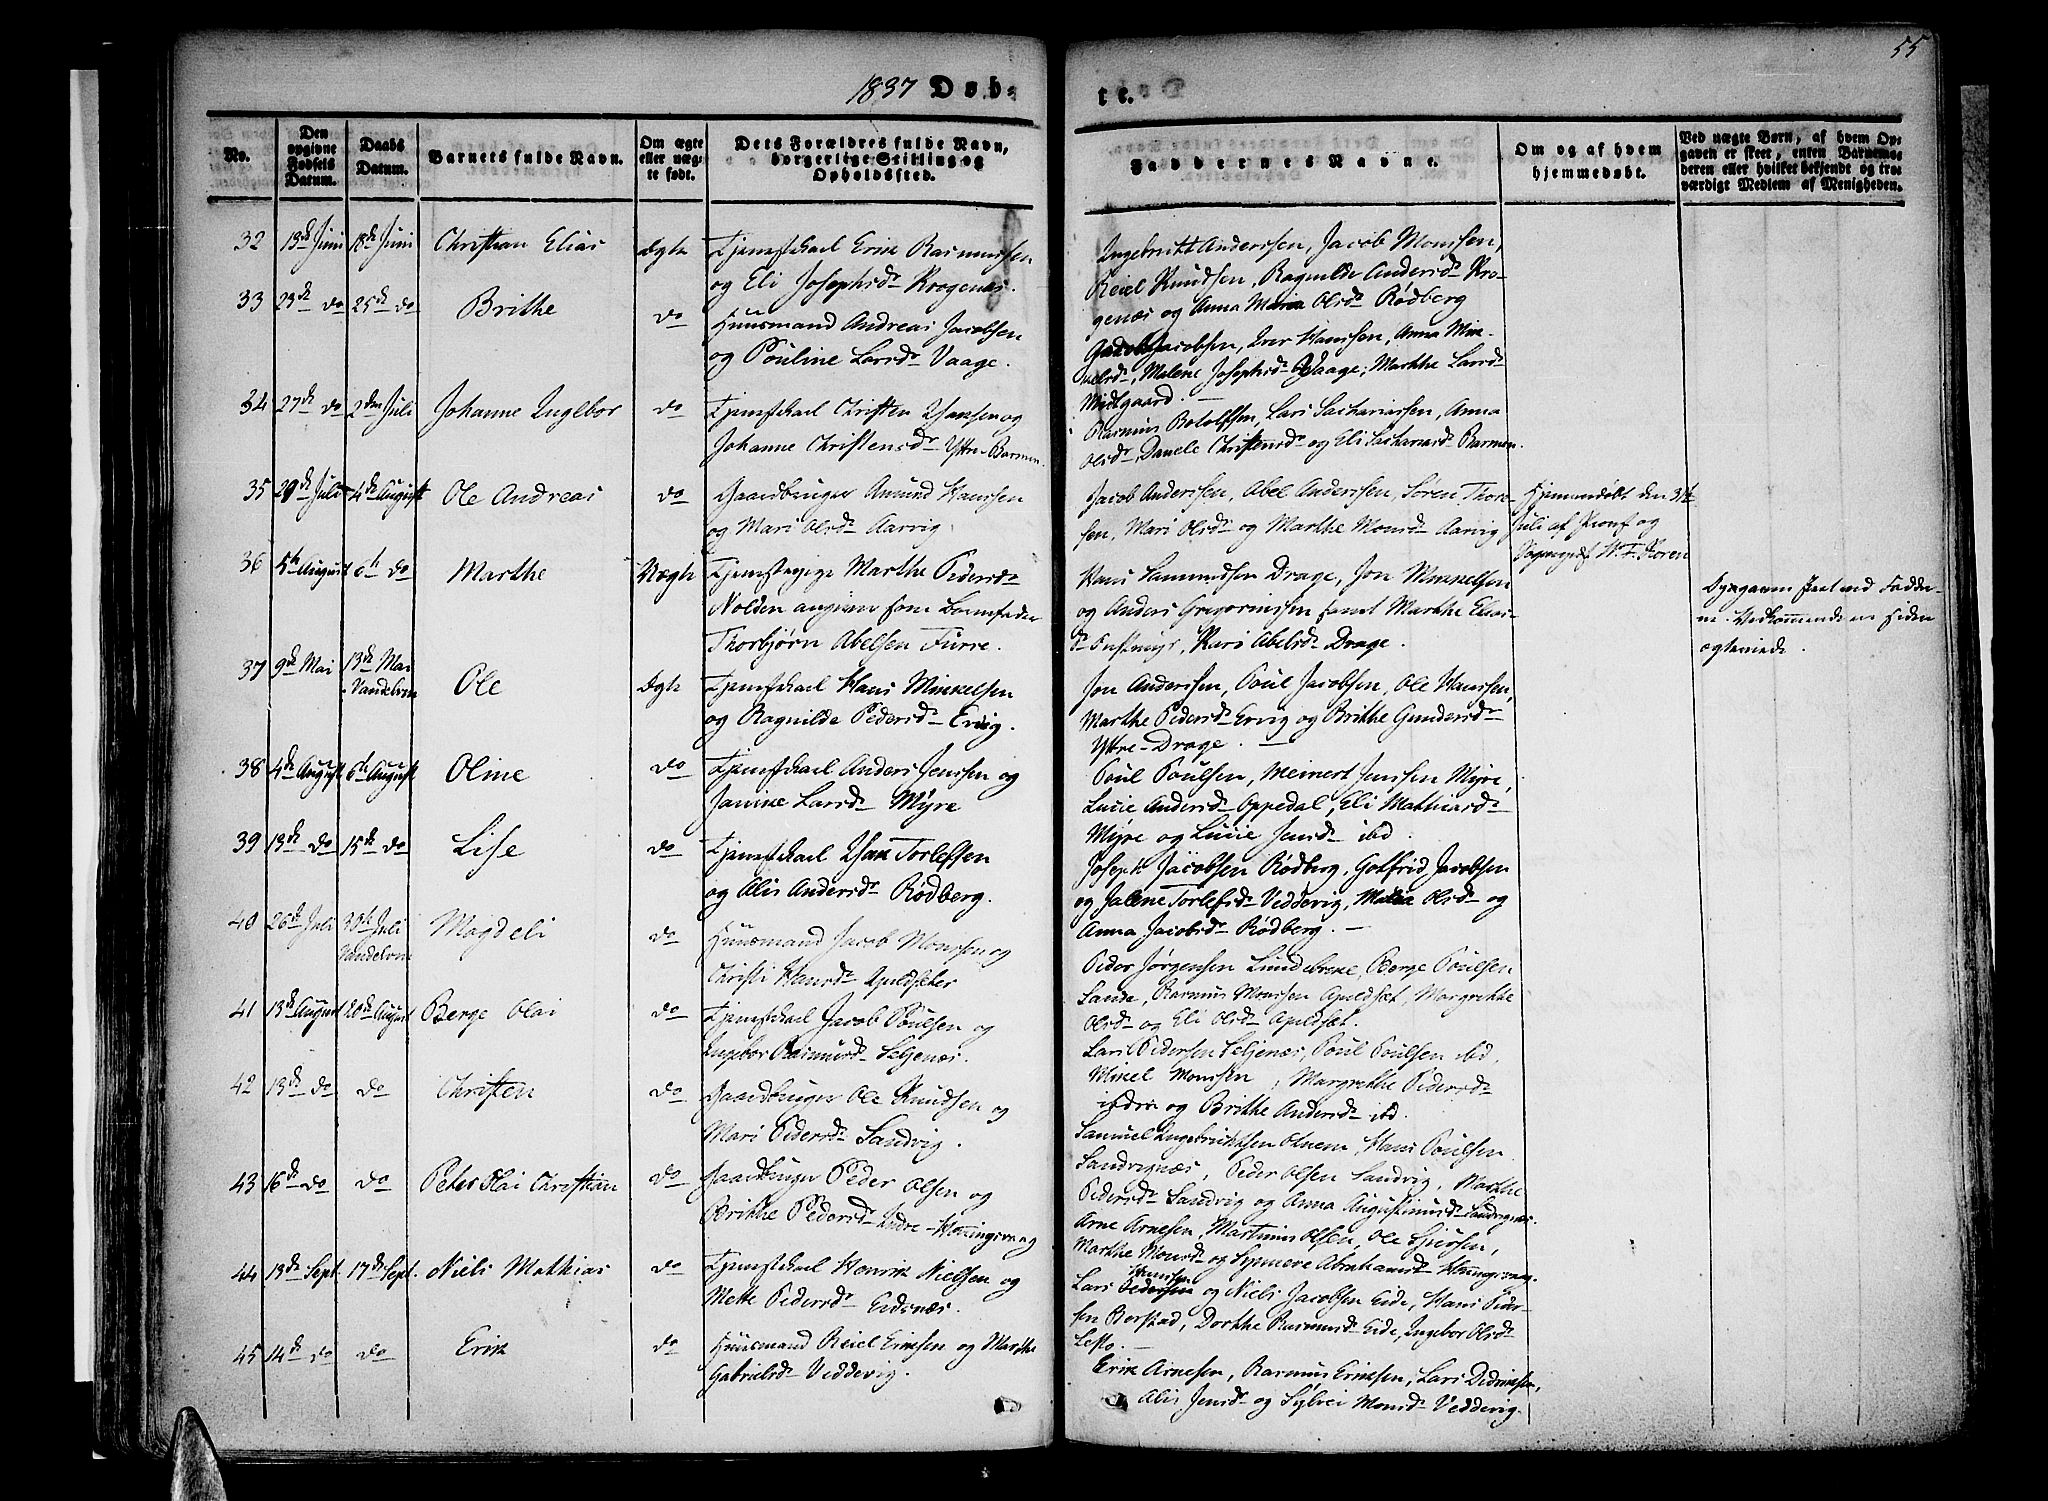 55
1837 Døb-
te.
No.
Den opgivne Fødsels Datum.
Daabs Datum.
Barnets fulde Navn.
Om ægte eller uægte født.
Dets Forældres fulde Navn, borgerlige Stilling og Opholdssted.
Faddernes Navne.
Om og af hvem hjemmedøbt.
Ved uægte Børn, af hvem Opgaven er skeet, enten Barnemoderen eller hvilket bekjendt og troværdigt Medlem af Menigheden.
32 13de Juni 18de Juni Christian Elias Ægte Tjenestekarl Erik Rasmussen
og Eli Josephsdr Krogenæs.
Ingebrikt Anderssen, Jacob Monssen,
Reiel Knudsen, Ragnilde Andersdr Kro-
genæs og Anna Maria Olsdr Rødberg
33 23de do 25de do Brithe do Huusmand Andreas Jacobsen
og Pouline Larsdr Vaage.
Jacobsen, Iver Hanssen, Anna Mik-
kelsdr, Malene Josephsdr Vaage, Marthe Larsdr
Midtgaard.
34 27de do 2den Juli Johanne Ingebor do Tjenestekarl Christen Hansen og
Johanne Christensdr Yttre-Barmen.
Rasmus Botolfsen, Lars Sachariassen, Anna
Olsdr, Danele Christensdr og Eli Sachariasdr Barmen.
35 29de Juli 4de August Ole Andreas do Gaardbruger Amund Hanssen
og Mari Olsdr Aarvig
Jacob Anderssen, Abel Anderssen, Søren Thore-
sen, Mari Olsdr og Marthe Monsdr Aarvig
Hjemmedøbt den 31te
Juli af Provst og
Sogneprest W. F. Koren
36 5te August 6te do Marthe Uægte Tjenestepige Marthe Pedersdr
Nolden angiver som Barnefader
Thorbjørn Abelsen Furre.
Hans Sammundsen Drage, Jon Mikkelsen
og Anders Gregoriussen samt Marthe Elias-
dr, Kari Abelsdr Drage.
Opgaven skeet ved Fadder-
ne. Vedkommende ere siden
egteviede.
37 9de Mai 13de Mai
Vandelven Ole Ægte Tjenestekarl Hans Mikkelsen
og Ragnilde Pedersdr Ervig.
Jon Anderssen, Poul Jacobsen, Ole Hanssen,
Marthe Pedersdr Ervig og Brithe Gundersdr
Yttre-Drage.
38 4de August 6te August Oline do Tjenestekarl Anders Jenssen og
Janike Larsdr Myre
Poul Poulsen, Meinert Jenssen Myre,
Lucie Andersdr Oppedal, Eli Mathiasdr
Myre og Lucie Jensdr ibd.
39 13de do 15de do Lise do Tjenestekarl Torlefsen
og Alis Andersdr Rødberg.
Joseph Jacobsen Rødberg, Gotfrid Jacobsen
og Jalene Torlefsdr Veddevig, Maria Olsdr og
Anna Jacobsdr Rødberg.
40 26de Juli 30te Juli
Vandelven Magdeli do Huusmand Jacob Monssen og
Christi Hansdr Apuldsæter
Peder Jørgensen Lundebrekke, Berge Poulsen
Sande, Rasmus Monssen Apuldsæt, Margrethe
Olsdr og Eli Olsdr Apuldsæt.
41 13de August 20de August Berge Olai do Tjenestekarl Jacob Poulsen og
Ingebor Rasmusdr Seljenæs.
Lars Pedersen Seljenæs, Poul Poulsen ibd,
Mikel Monssen, Margrethe Pedersdr
og Brithe Andersdr ibd.
42 13de do do Christen do Gaardbruger Ole Knudsen og
Mari Pedersdr Sandvig.
Samuel Ingebriktsen Otnem, Hans Poulsen
Sandvignæs, Peder Olsen Sandvig, Marthe
Pedersdr Sandvig og Anna Augustinusdr Sandvignæs.
43 16de do do Peter Olai Christian do Gaardbruger Peder Olsen og
Brithe Pedersdr Indre-Honningsvaag
Arne Arnesen, Martinus Olsen, Ole Sjursen,
Marthe Monsdr og Synneve Abrahamsdr Honningsvaag.
44 13de Sept. 17de Sept. Niels Mathias do Tjenestekarl Henrik Nielsen og
Mette Pedersdr Eidsnæs.
Hanssen
Lars Pedersen og Niels Jacobsen Eide, Hans Peder-
sen Berstad, Dorthe Rasmusdr Eide, Ingebor Olsdr
Lesto.
45 14de do do Erik do Huusmand Reiel Eriksen og Marthe
Gabrielsdr Veddevig.
Erik Arnesen, Rasmus Eriksen, Lars Didriksen,
Alis Jensdr og Sylvei Monsdr Veddevig.